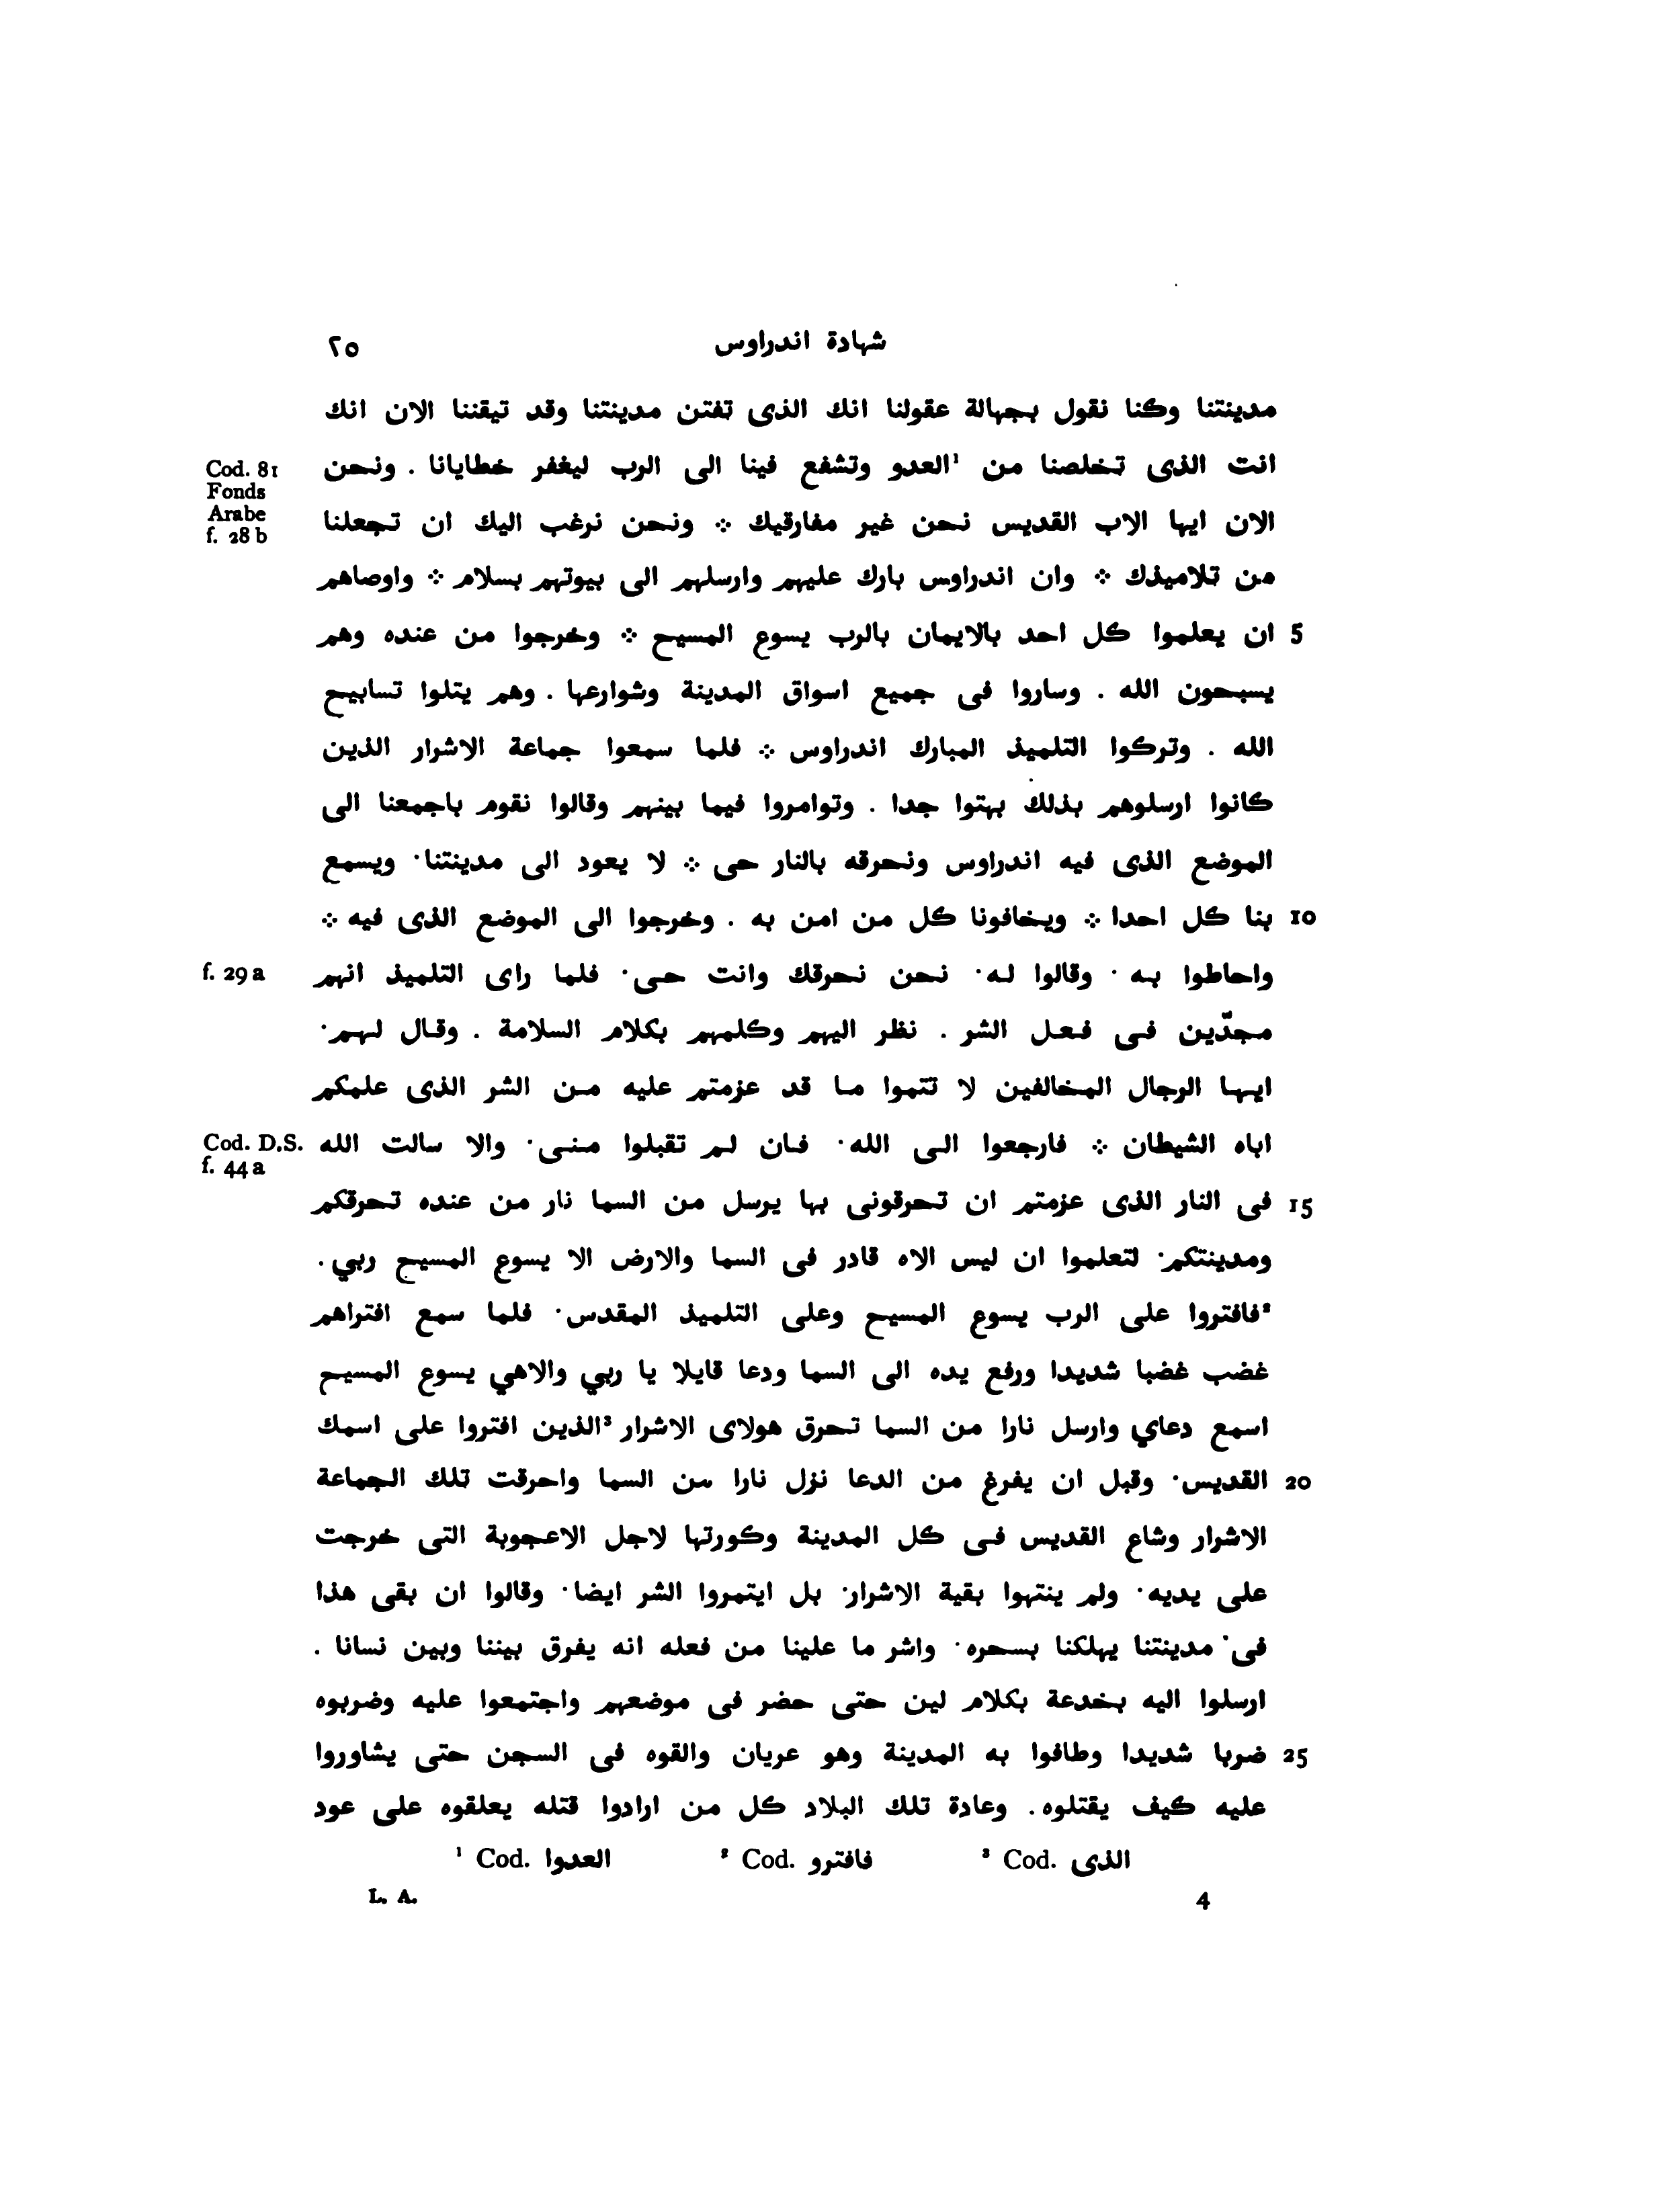 شهادة اندراوس ٢٥
مدينتنا وكنا نقول بجهالة عقولنا انك الذى تفتن مدينتنا وقد تيقننا الان انك
انت الذى تخلصنا من ¹العدو وتشفع فينا الى الرب ليغفر خطايانا . ونحن
Cod. 81
Fonds
Arabe
f. 28 b
الان ايها الاب القديس نحن غير مفارقيك ܀ ونحن نرغب اليك ان تجعلنا
من تلاميذك ܀ وان اندراوس بارك عليهم وارسلهم الى بيوتهم بسلام ܀ واوصاهم
5 ان يعلموا كل احد بالايمان بالرب يسوع المسيح ܀ وخرجوا من عنده وهم
يسبحون الله . وساروا فى جميع اسواق المدينة وشوارعها . وهم يتلوا تسابيح
الله . وتركوا التلميذ المبارك اندراوس ܀ فلما سمعوا جماعة الاشرار الذين
كانوا ارسلوهم بذلك بهتوا جدا . وتوامروا فيما بينهم وقالوا نقوم باجمعنا الى
الموضع الذى فيه اندراوس ونحرقه بالنار حى ܀ لا يعود الى مدينتنا· ويسمع
10 بنا كل احدا ܀ ويخافونا كل من امن به . وخرجوا الى الموضع الذى فيه ܀
واحاطوا به · وقالوا له· نحن نحرقك وانت حى· فلما راى التلميذ انهم
f. 29 a
مجدّين فى فعل الشر . نظر اليهم وكلمهم بكلام السلامة . وقال لهم·
ايها الرجال المخالفين لا تتموا ما قد عزمتم عليه من الشر الذى علمكم
اباه الشيطان ܀ فارجعوا الى الله· فان لم تقبلوا منى· والا سالت الله
Cod. D.S.
f. 44 a
15 فى النار الذى عزمتم ان تحرقونى بها يرسل من السما نار من عنده تحرقكم
ومدينتكم· لتعلموا ان ليس الاه قادر فى السما والارض الا يسوع المسيح ربي .
²فافتروا على الرب يسوع المسيح وعلى التلميذ المقدس· فلما سمع افتراهم
غضب غضبا شديدا ورفع يده الى السما ودعا قايلا يا ربي والاهي يسوع المسيح
اسمع دعاي وارسل نارا من السما تحرق هولاى الاشرار ³الذين افتروا على اسمك
20 القديس· وقبل ان يفرغ من الدعا نزل نارا من السما واحرقت تلك الجماعة
الاشرار وشاع القديس فى كل المدينة وكورتها لاجل الاعجوبة التى خرجت
على يديه· ولم ينتهوا بقية الاشرار· بل ايتمروا الشر ايضا· وقالوا ان بقى هذا
فى· مدينتنا يهلكنا بسحره· واشر ما علينا من فعله انه يفرق بيننا وبين نسانا .
ارسلوا اليه بخدعة بكلام لين حتى حضر فى موضعهم واجتمعوا عليه وضربوه
25 ضربا شديدا وطافوا به المدينة وهو عريان والقوه فى السجن حتى يشاوروا
عليه كيف يقتلوه. وعادة تلك البلاد كل من ارادوا قتله يعلقوه على عود
¹ Cod. العدوا ² Cod. فافترو ³ Cod. الذى
L. A. 4